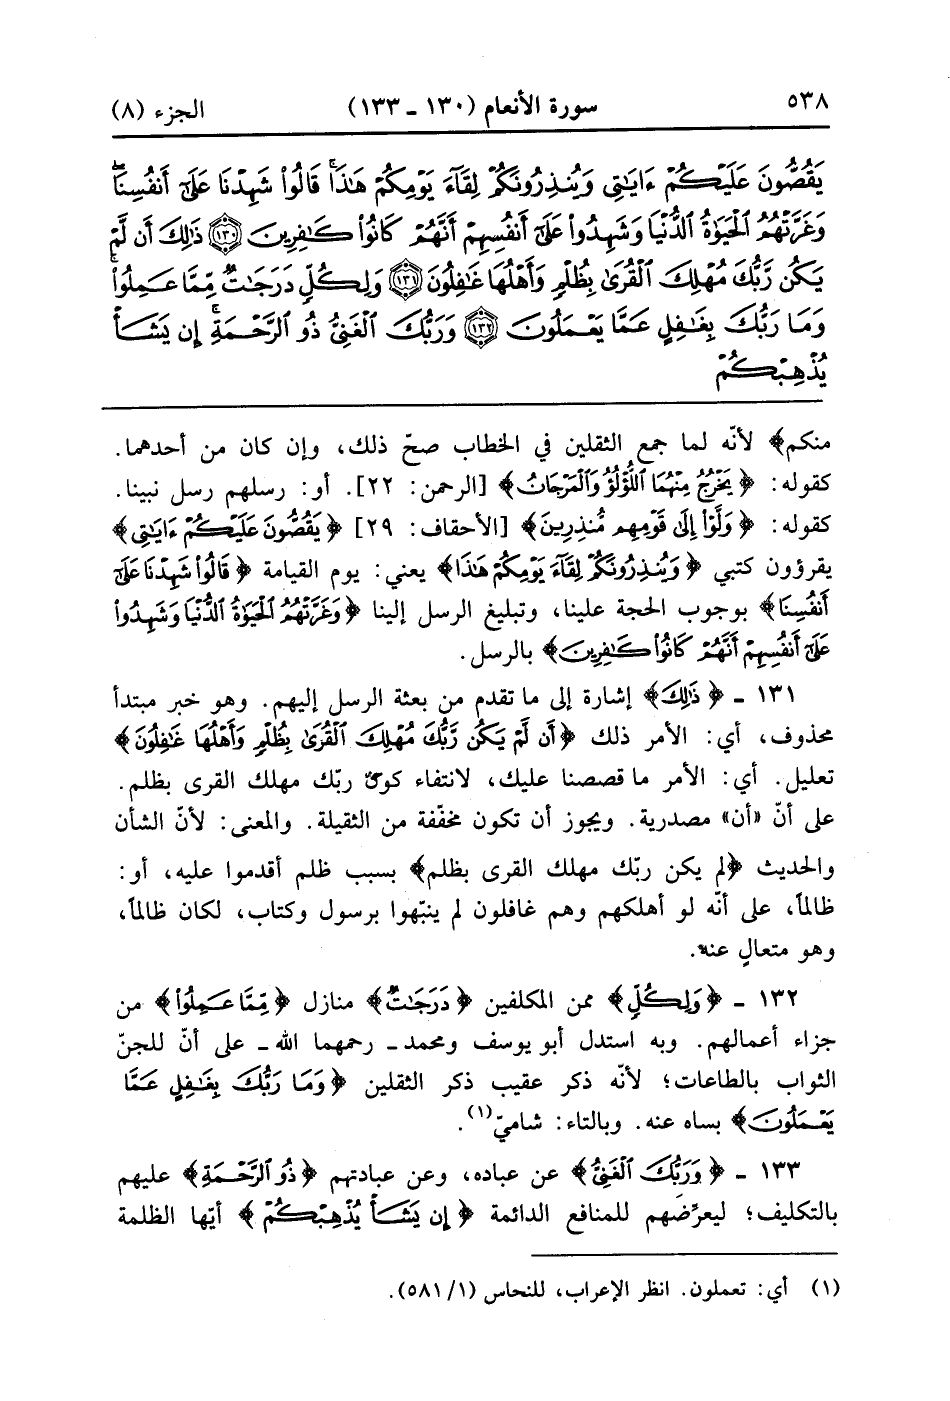 ٥٣٨ سورة الأنعام (١٣٠ ـ ١٣٣) الجزء (٨)
يَقُصُّونَ عَلَيْكُمْ ءَايَٰتِى وَيُنذِرُونَكُمْ لِقَآءَ يَوْمِكُمْ هَٰذَا ۚ قَالُوا۟ شَهِدْنَا عَلَىٰٓ أَنفُسِنَا ۖ
وَغَرَّتْهُمُ ٱلْحَيَوٰةُ ٱلدُّنْيَا وَشَهِدُوا۟ عَلَىٰٓ أَنفُسِهِمْ أَنَّهُمْ كَانُوا۟ كَٰفِرِينَ ﴿١٣٠﴾ ذَٰلِكَ أَن لَّمْ
يَكُن رَّبُّكَ مُهْلِكَ ٱلْقُرَىٰ بِظُلْمٍ وَأَهْلُهَا غَٰفِلُونَ ﴿١٣١﴾ وَلِكُلٍّ دَرَجَٰتٌ مِّمَّا عَمِلُوا۟ ۚ
وَمَا رَبُّكَ بِغَٰفِلٍ عَمَّا يَعْمَلُونَ ﴿١٣٢﴾ وَرَبُّكَ ٱلْغَنِىُّ ذُو ٱلرَّحْمَةِ ۚ إِن يَشَأْ
يُذْهِبْكُمْ
منكم﴾ لأنّه لما جمع الثقلين في الخطاب صحّ ذلك، وإن كان من أحدهما.
كقوله: ﴿يَخْرُجُ مِنْهُمَا ٱللُّؤْلُؤُ وَٱلْمَرْجَانُ﴾ [الرحمن: ٢٢]. أو: رسلهم رسل نبينا.
كقوله: ﴿وَلَّوْا۟ إِلَىٰ قَوْمِهِم مُّنذِرِينَ﴾ [الأحقاف: ٢٩] ﴿يَقُصُّونَ عَلَيْكُمْ ءَايَٰتِى﴾
يقرؤون كتبي ﴿وَيُنذِرُونَكُمْ لِقَآءَ يَوْمِكُمْ هَٰذَا﴾ يعني: يوم القيامة ﴿قَالُوا۟ شَهِدْنَا عَلَىٰٓ
أَنفُسِنَا﴾ بوجوب الحجة علينا، وتبليغ الرسل إلينا ﴿وَغَرَّتْهُمُ ٱلْحَيَوٰةُ ٱلدُّنْيَا وَشَهِدُوا۟
عَلَىٰٓ أَنفُسِهِمْ أَنَّهُمْ كَانُوا۟ كَٰفِرِينَ﴾ بالرسل.
١٣١ ـ ﴿ذَٰلِكَ﴾ إشارة إلى ما تقدم من بعثة الرسل إليهم. وهو خبر مبتدأ
محذوف، أي: الأمر ذلك ﴿أَن لَّمْ يَكُن رَّبُّكَ مُهْلِكَ ٱلْقُرَىٰ بِظُلْمٍ وَأَهْلُهَا غَٰفِلُونَ﴾
تعليل. أي: الأمر ما قصصنا عليك، لانتفاء كون ربّك مهلك القرى بظلم.
على أنّ «أن» مصدرية. ويجوز أن تكون مخفّفة من الثقيلة. والمعنى: لأنّ الشأن
والحديث ﴿لم يكن ربّك مهلك القرى بظلم﴾ بسبب ظلم أقدموا عليه، أو:
ظالماً، على أنّه لو أهلكهم وهم غافلون لم ينبّهوا برسول وكتاب، لكان ظالماً،
وهو متعالٍ عنه.
١٣٢ ـ ﴿وَلِكُلٍّ﴾ ممن المكلفين ﴿دَرَجَٰتٌ﴾ منازل ﴿مِّمَّا عَمِلُوا۟﴾ من
جزاء أعمالهم. وبه استدل أبو يوسف ومحمد ـ رحمهما الله ـ على أنّ للجنّ
الثواب بالطاعات؛ لأنّه ذكر عقيب ذكر الثقلين ﴿وَمَا رَبُّكَ بِغَٰفِلٍ عَمَّا
يَعْمَلُونَ﴾ بساه عنه. وبالتاء: شاميّ(١).
١٣٣ ـ ﴿وَرَبُّكَ ٱلْغَنِىُّ﴾ عن عباده، وعن عبادتهم ﴿ذُو ٱلرَّحْمَةِ﴾ عليهم
بالتكليف؛ ليعرِّضَهم للمنافع الدائمة ﴿إِن يَشَأْ يُذْهِبْكُمْ﴾ أيّها الظلمة
(١) أي: تعملون. انظر الإعراب، للنحاس (٥٨١/١).